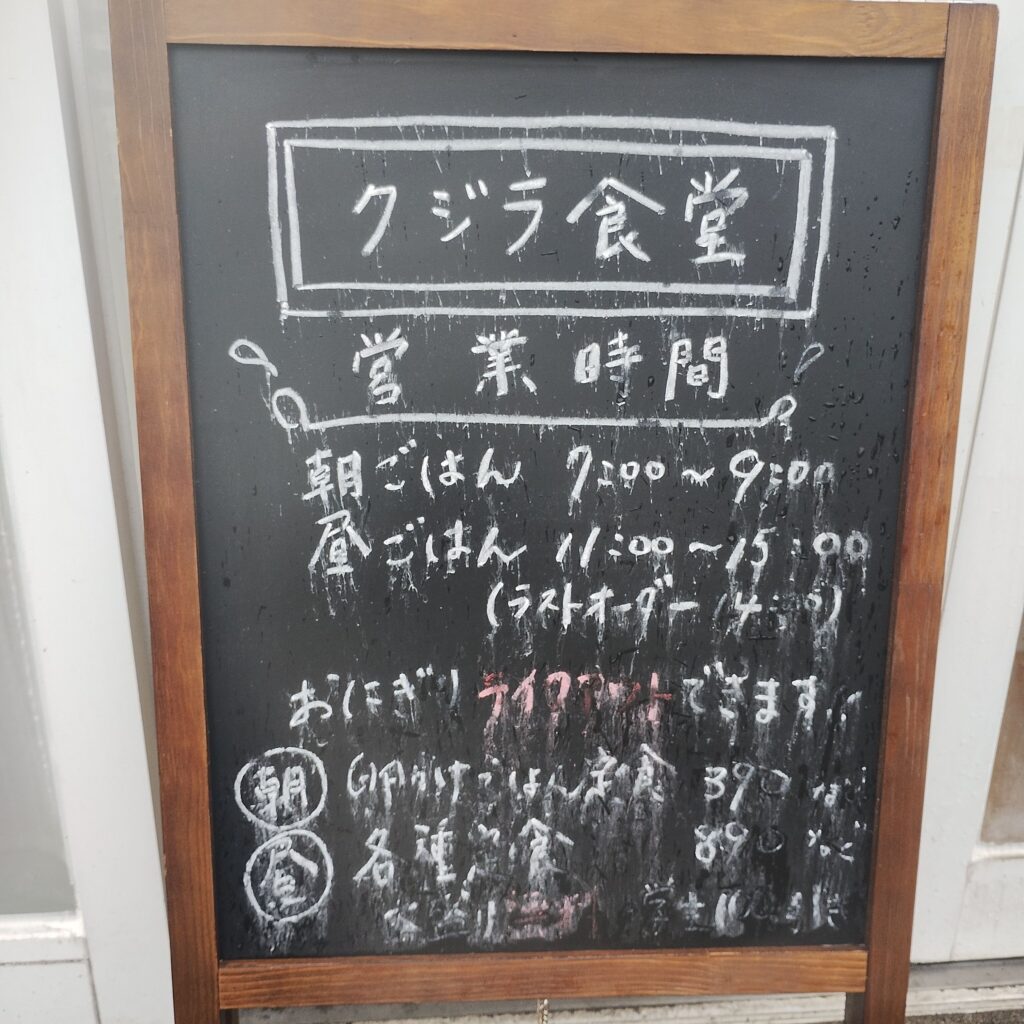 クジラ食堂
営業時間
朝ごはん 7:00～9:00
昼ごはん 11:00～15:00
(ラストオーダー 14:00)
おにぎり テイクアウトできます。
朝 卵かけごはん定食 390
昼 各種定食 890
大盛り 学生100円引き